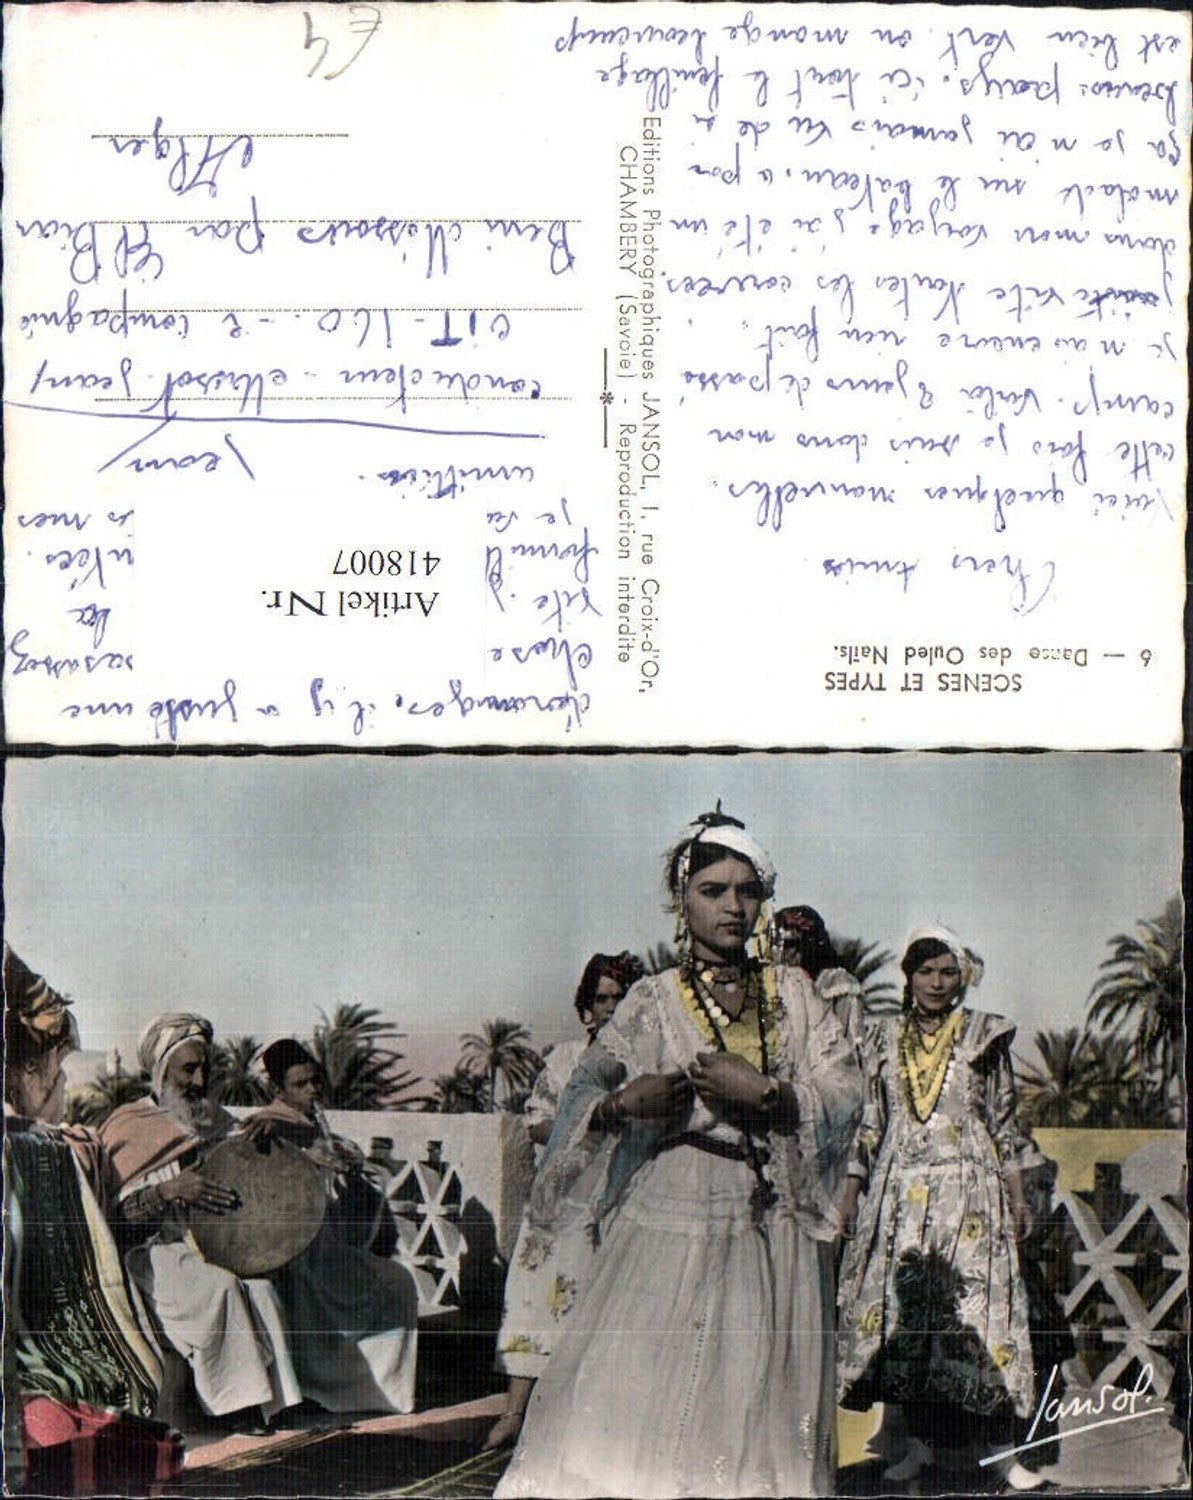 SCENES ET TYPES
6 — Danse des Ouled Nails.
Chers Amis.
Voici quelques nouvelles.
cette fois je suis dans mon
camp. Voilà 8 jours de passé
je n'ai encore rien fait.
vite toutes les corvées.
dans mon voyage j'ai été un
malade sur le bateau. a par
ça je n'ai jamais vu de si
beaus pays. ici tout le feuillage
est bien vert on mange beaucoup
Editions Photographiques JANSOL, 1, rue Croix-d'Or,
CHAMBERY (Savoie) - Reproduction interdite
d'oranges. il y a juste une
chose
vite.
je
amitiés.
Jean
Artikel Nr.
418007
conducteur - Jean
CIT - 160. - 2 compagnie
Beni Messous par El Biar
Alger
E4
Jansol.